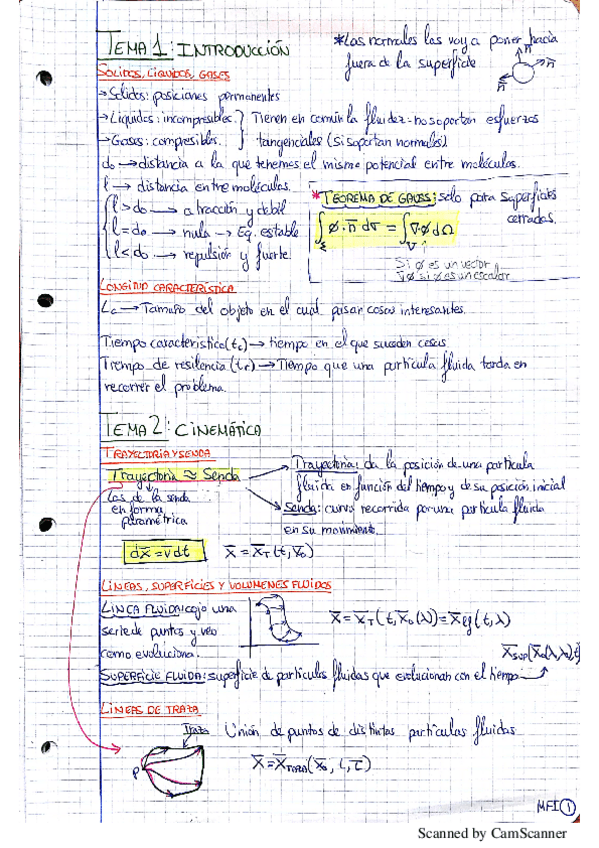 TEMA 1: INTRODUCCIÓN
*Las normales las voy a poner hacia
fuera de la superficie
n n n
SÓLIDOS, LÍQUIDOS, GASES
→Sólidos: posiciones permanentes
→Líquidos: incompresibles. } Tienen en común la fluidez: no soportan esfuerzos
→Gases: compresibles. } tangenciales (si soportan normales)
do → distancia a la que tenemos el mismo potencial entre moléculas.
l → distancia entre moléculas.
l > do → atracción y débil
l = do → nula → Eq. estable
l < do → repulsión y fuerte
*TEOREMA DE GAUSS: solo para superficies
cerradas.
∫Σ ϕ·n̄ dσ = ∫V ∇·ϕ dΩ
Si ϕ es un vector
∇ϕ si ϕ es un escalar
LONGITUD CARACTERÍSTICA
Lc → Tamaño del objeto en el cual pasan cosas interesantes.
Tiempo característico (tc) → tiempo en el que suceden cosas
Tiempo de resilencia (tr) → Tiempo que una partícula fluida tarda en
recorrer el problema.
TEMA 2: CINEMÁTICA
TRAYECTORIA Y SENDA
Trayectoria ≈ Senda
Las de la senda
en forma
paramétrica
Trayectoria: da la posición de una partícula
fluida en función del tiempo y de su posición inicial
Senda: curva recorrida por una partícula fluida
en su movimient.
dx̄ = v̄dt x̄ = x̄T (t, x̄o)
LÍNEAS, SUPERFICIES Y VOLUMENES FLUIDOS
LINEA FLUIDA: cojo una
serie de puntos y veo
como evoluciona.
x̄ = x̄T (t, x̄o (λ)) = x̄ef (t, λ)
SUPERFICIE FLUIDA: superficie de partículas fluidas que evolucionan con el tiempo
LINEAS DE TRAZA
Traza
P
Unión de puntos de distintas partículas fluidas
MFI 1
Scanned by CamScanner